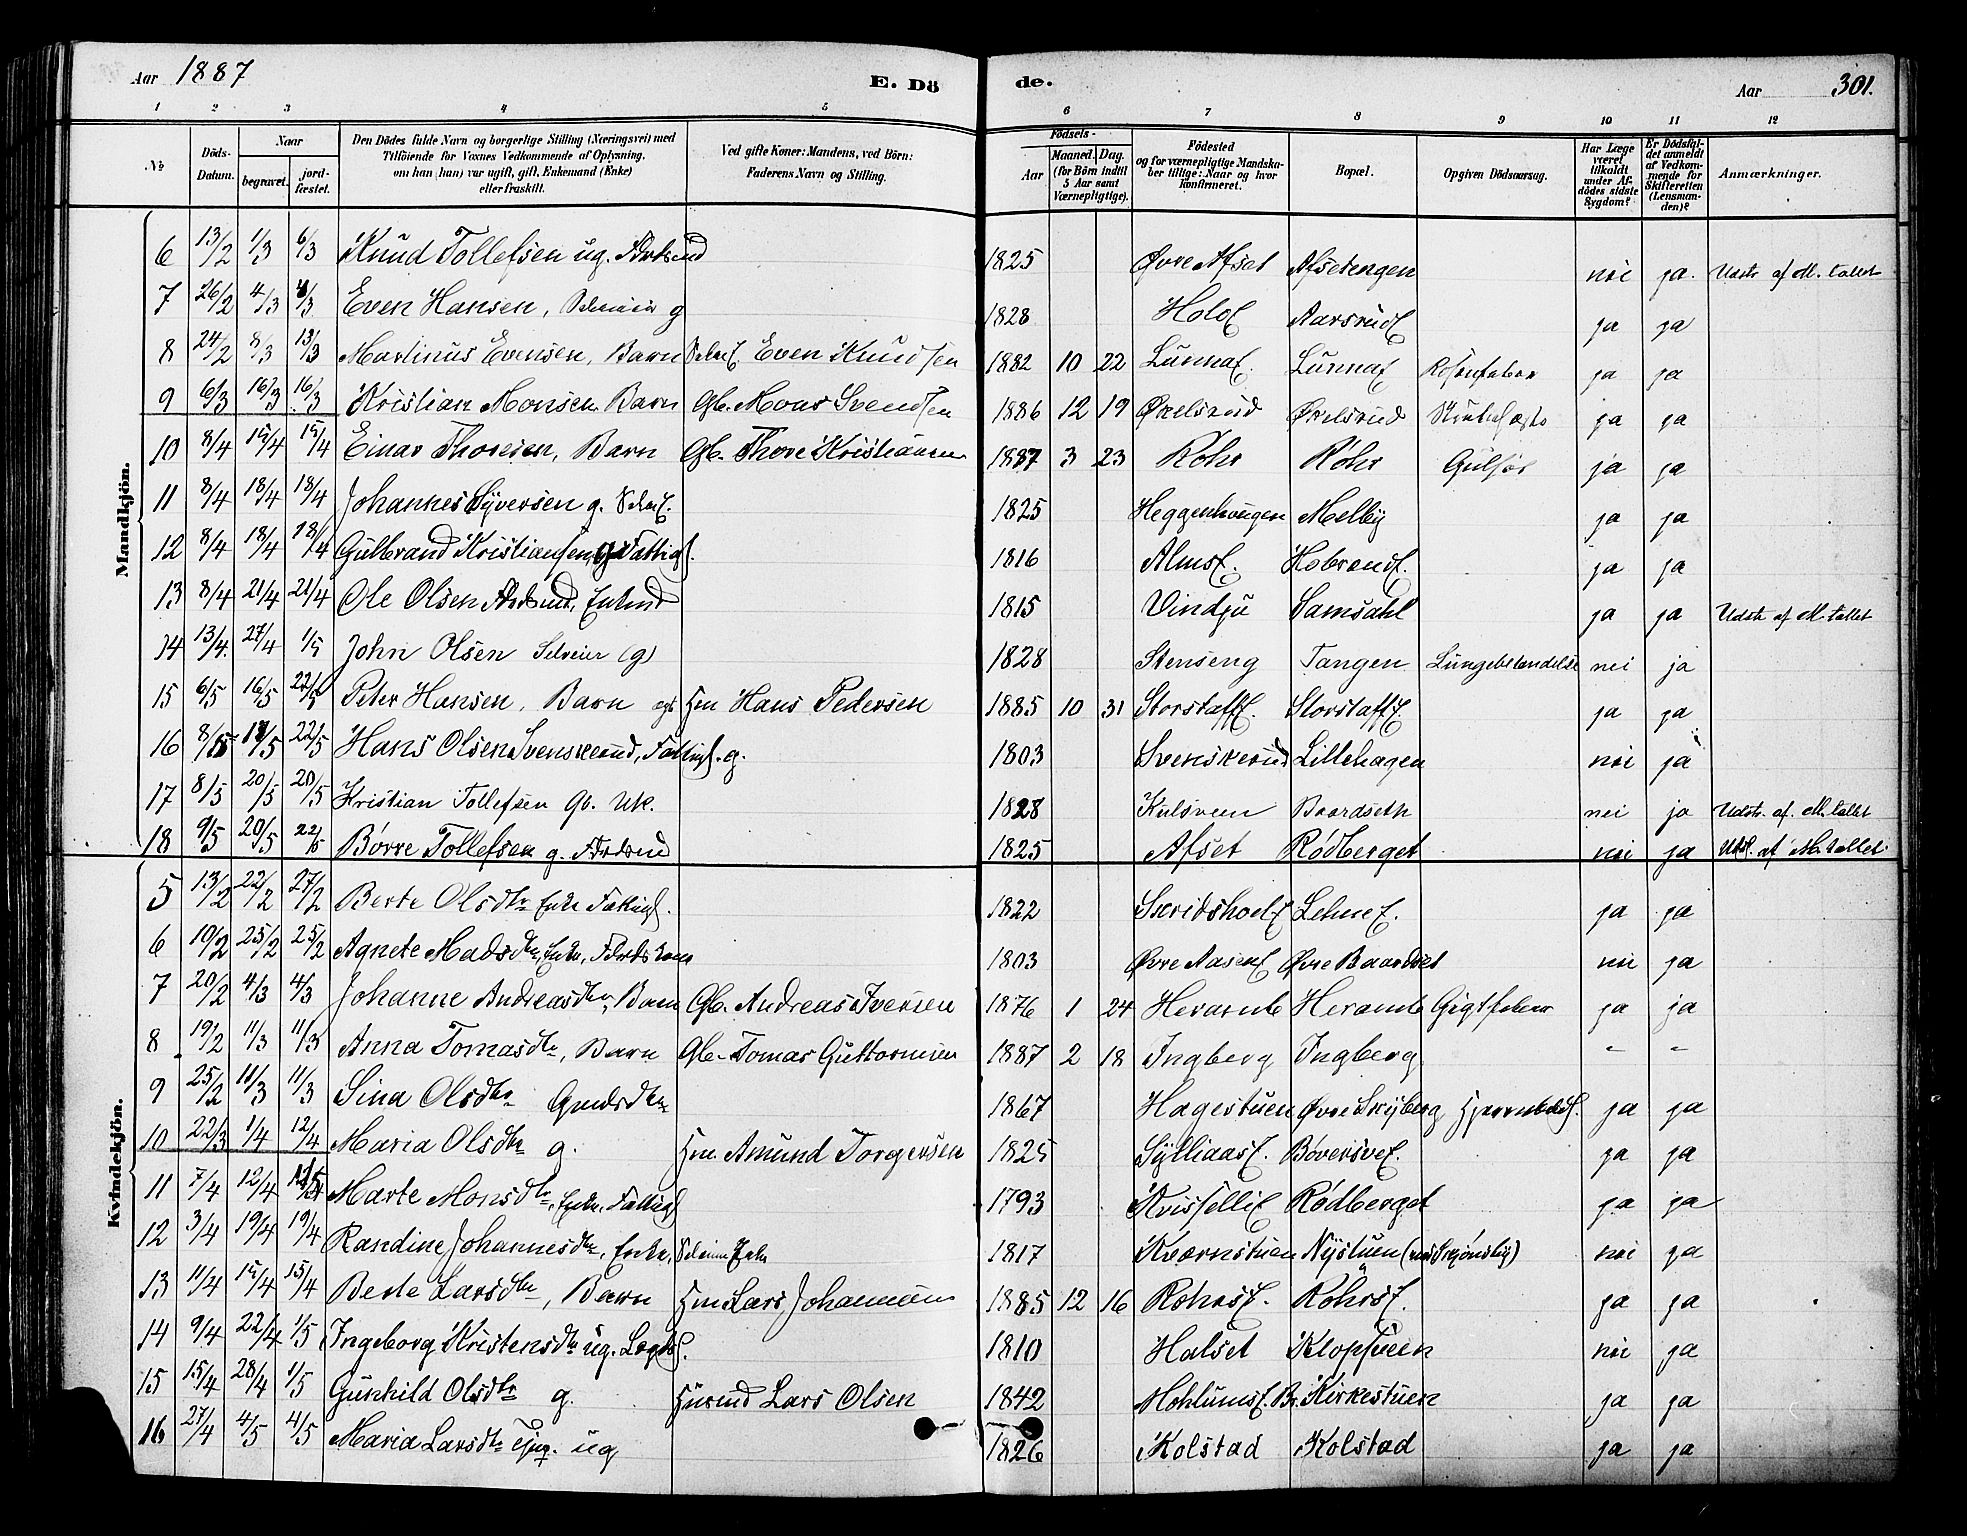 Aar 1887 E. Dö
de. Aar 301.
1 2 3 4 5
6 7 8 9 10 11 12
№ Döds-Datum. Naar begravet. jord-fæstet. Den Dödes fulde Navn og borgerlige Stilling (Næringsvei) med Tilföiende for Voxnes Vedkommende af Oplysning, om han (hun) var ugift, gift, Enkemand (Enke) eller fraskilt. Ved gifte Koner: Mandens, ved Börn: Faderens Navn og Stilling.
Födsels- Aar Maaned. Dag. (for Börn indtil 5 Aar samt Værnepligtige). Födested og for værnepligtige Mandska-ber tillige: Naar og hvor konfirmeret. Bopæl. Opgiven Dödsaarsag. Har Læge været tilkaldt under Af-dødes sidste Sygdom? Er Dödsfal-det anmeldt af Vedkom-mende for Skifteretten (Lensman-den)? Anmærkninger.
Mandkjön.
6 13/2 1/3 6/3 Knud Tollefsen ug. 1825 Øvre Afset Afsetengen nei ja. Udstr. af M. tallet
7 26/2 4/3 Even Hansen, Selveier g 1828 Aarsrud ja ja
8 24/2 8/3 13/3 Martinus Evensen, Barn Even Knudsen 1882 10 22 Lunna Lunna ja ja
9 6/3 16/3 16/3 Kristian Monsen. Barn Gb. Mons Svendsen 1886 12 19 Økelsrud Økelsrud ja ja
10 8/4 15/4 15/4 Einar Thoresen, Barn Gb. Thore Kristiansen 1887 3 23 Röhr Röhr Gulsot ja ja
11 8/4 18/4 18/4 Johannes Syversen g. 1825 Heggenhougen Melby ja ja
12 8/4 18/4 18/4 Gulbrand Kristiansen, Fattigl. 1816 ja ja
13 8/4 21/4 21/4 Ole Olsen Enkmd 1815 Vindju Samsahl ja ja Udstr af M. tallet
14 13/4. 27/4 1/5 John Olsen Selveier (g) 1828 Stenseng Tangen Lungebetændelse nei ja
15 6/5 16/5 22/5 Peter Hansen, Barn Hm Hans Pedersen 1885 10 31 Storstaff Storstaff ja ja
16 8/5 22/5 Hans Olsen Svenskerud, Fattigl. g. 1803 Svenskerud Lillehagen nei ja
17 8/5 20/5 20/5 Kristian Tollefsen Gb. 1828 Kulsveen Baardseth nei ja Udstr. af. M. tallet
18 9/5 20/5 22/5 Börre Tollefsen g. 1825 Afset Rödberget nei ja Udst. af M. tallet
Kvindekjön.
5 13/2 22/2 27/2 Berte Olsdtr Enke Fattigl. 1822 ja ja
6 10/2 25/2 25/2 Agnete Madsdtr, Enke, 1803 Øvre Aasen Øvre Baardset nei ja
7 20/2 4/3 4/3 Johanne Andreasdtr, Barn Gb. Andreas Iversen 1876 1 24 Heramb Heramb Gigtfeber ja ja
8 19/2 11/3 11/3 Anna Tomasdtr, Barn Gb. Tomas Guttormsen 1887 2 18 Ingberg Ingberg - -
9 25/2 11/3 11/3 Sina Olsdtr Gmdsdtr 1867 Hagestuen Øvre Skyberg ja ja
10 22/3 1/4 12/4 Maria Olsdtr g. Hm. Amund Torgersen 1825 ja ja
11 7/4 12/4 Marte Monsdtr, Enke. Fattigl 1793 Rödberget ja ja
12 3/4 19/4 19/4 Randine Johannesdtr, Enke, 1817 Kværnstuen Nystuen nei ja
13 11/4 15/4 15/4 Berte Larsdtr, Barn Hm Lars Johannesen 1885 12 16 ja ja
14 9/4 22/4 1/5 Ingeborg Kristensdtr ug. Lægdsl. 1810 Halset nei ja
15 15/4 28/4 1/5 Gunhild Olsdtr g. Husmd Lars Olsen 1842 Kirkestuen ja ja
16 27/4 4/5 4/5 Maria Larsdtr ug 1826 Kolstad Kolstad ja ja